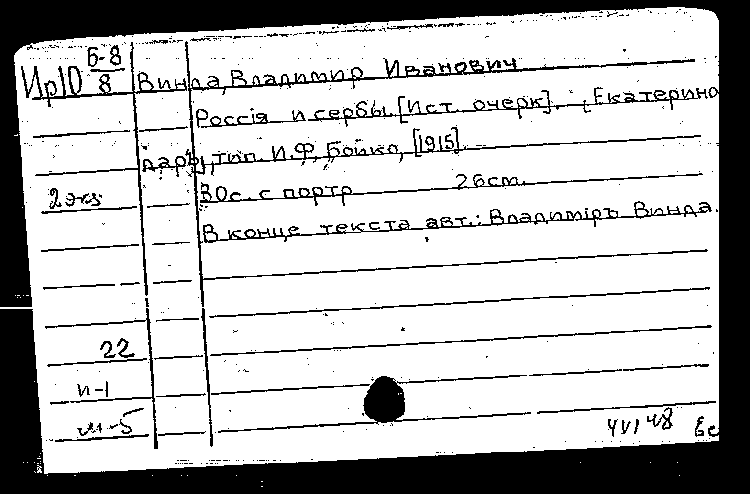 Ир10 Б-8/8 Винда, Владимир Иванович
Россія и сербы. [Ист. очерк]. [Екатерино
даръ], тип. И.Ф. Бойко, [1915].
2 экз 30с. с портр 26см.
В конце текста авт.: Владиміръ Винда.
22
и-1
м-5
4 VI 48